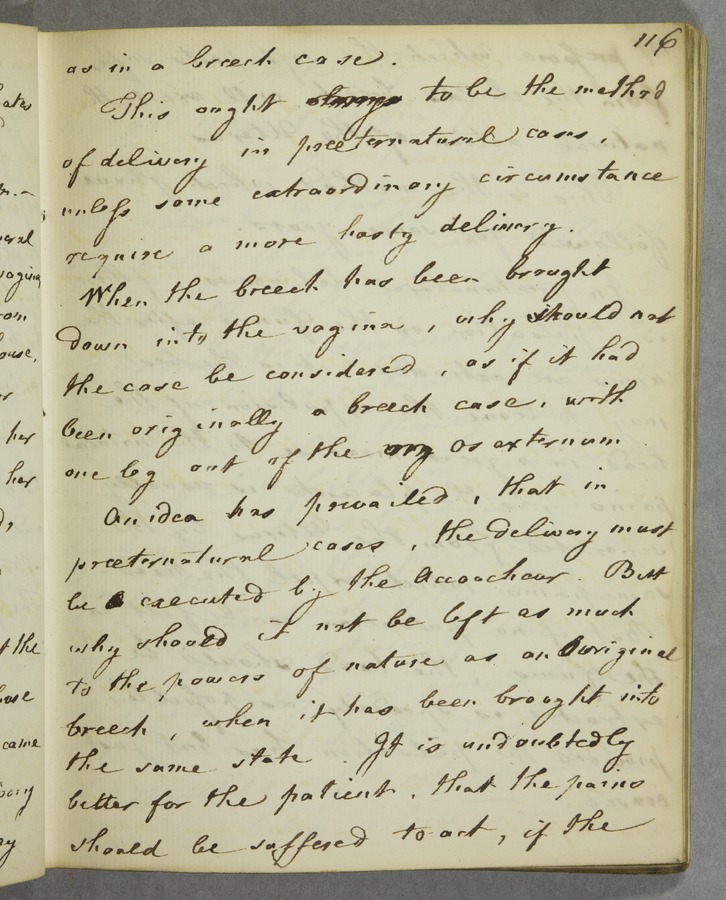 116
as in a breech case.
This ought to be the method
of delivery in præternatural cases,
unless some extraordinary circumstance
require a more hasty delivery.
When the breech has been brought
down into the vagina, why should not
the case be considered, as if it had
been originally a breech case, with
one leg out of the os externum
An idea has prevailed, that in
præternatural cases, the delivery must
be executed by the Accoucheur. But
why should it not be left as much
to the powers of nature as an Original
breech, when it has been brought into
the same state. It is undoubtedly
better for the patient, that the pains
should be suffered to act, if the